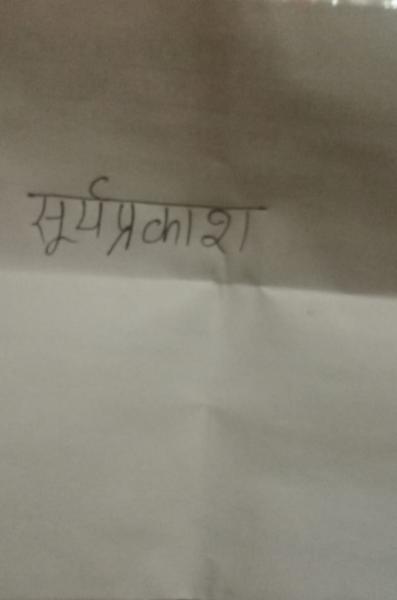 सूर्यप्रकाश